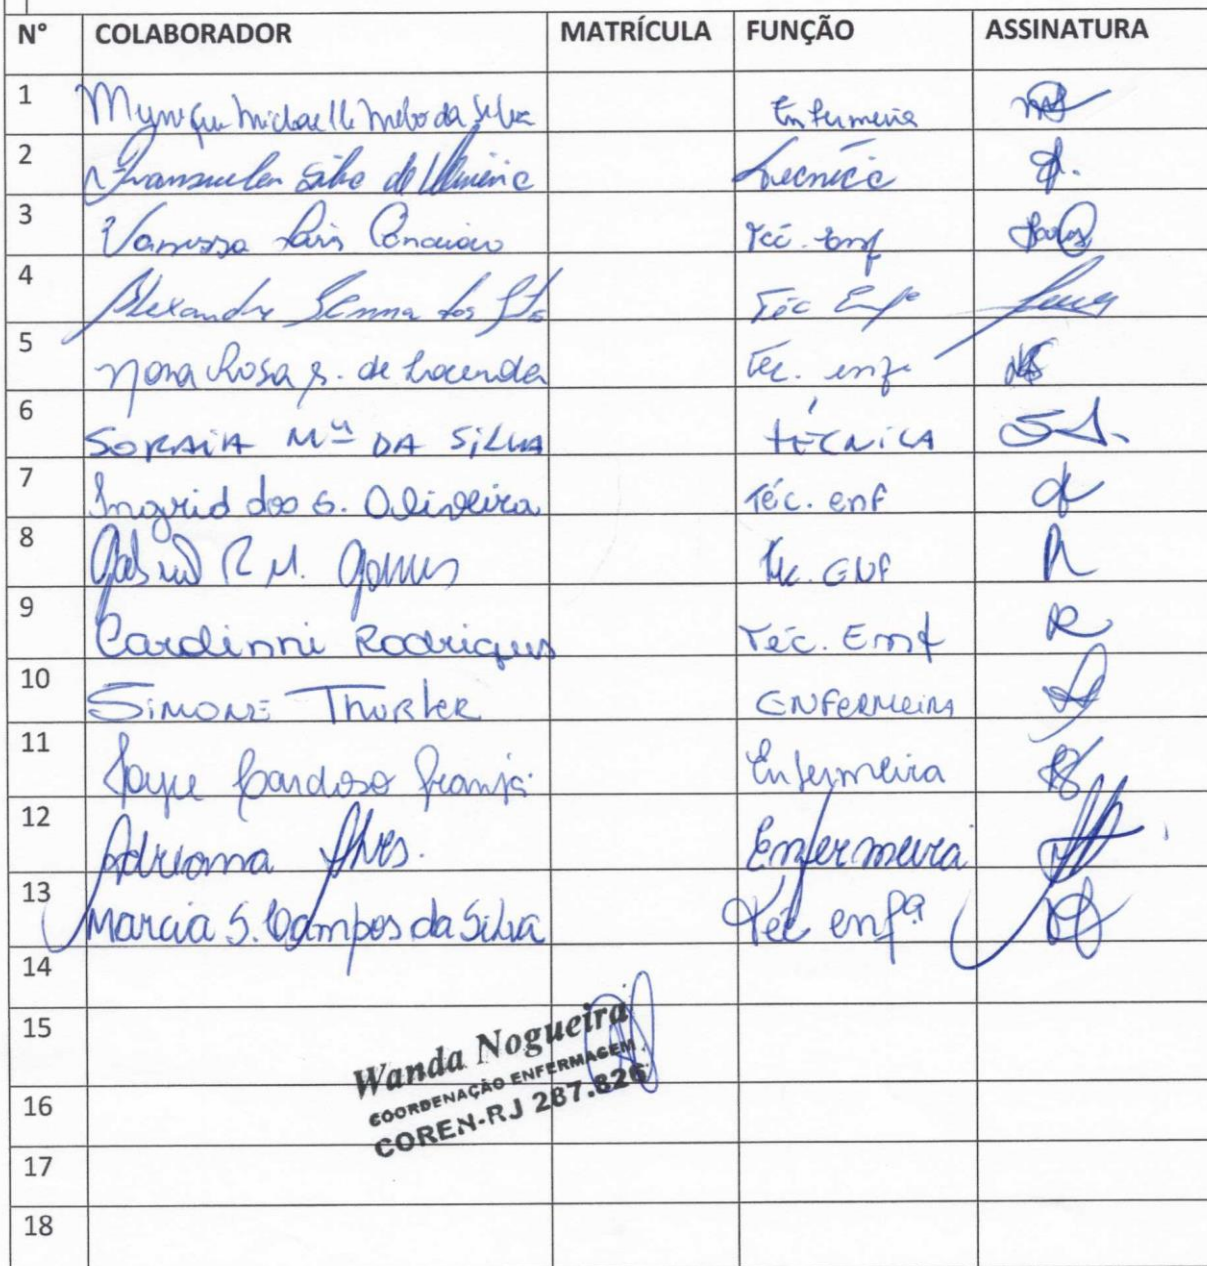 N° COLABORADOR MATRÍCULA FUNÇÃO ASSINATURA
1 Michaelle Melo da Silva Enfermeira
2 Silva de Técnica
3 Vanessa Téc. Enf
4 Alexandre Senna dos Stos Téc Enfº
5 Rosa S. de Lacerda Tec. enf
6 SORAIA Mª DA SILVA TÉCNICA
7 Ingrid dos S. Oliveira Téc. enf
8 Gabriel R M. Gomes Tec. ENF
9 Carolinni Rodrigues Téc. Enf
10 SIMONE THURLER ENFERMEIRA
11 Joyce Cardoso Enfermeira
12 Adriana Alves. Enfermeira
13 Marcia S. Campos da Silva Téc enfª
14
15
16
17
18
Wanda Nogueira
COORDENAÇÃO ENFERMAGEM
COREN-RJ 287.826